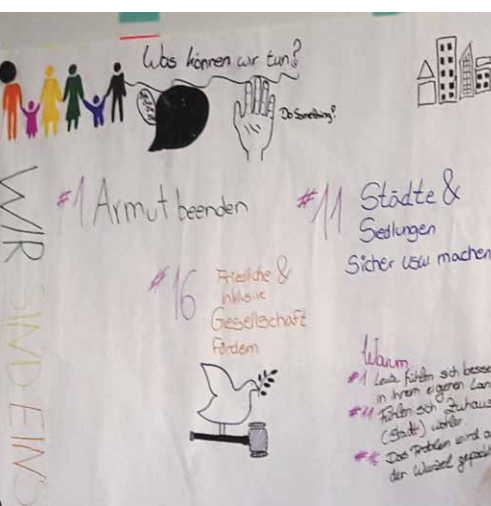 Was können wir tun?
Do Something!
WIR SIND EINS
#1 Armut beenden
#11 Städte &
Siedlungen
Sicher usw machen
#16 Friedliche &
inklusive
Gesellschaft
fördern
Warum
#1 Leute fühlen sich besse
in ihrem eigenen Lan
#11 Fühlen sich Zuhaus
(Stadt) wohler
#16 Das Problem wird a
der Wurzel gepack